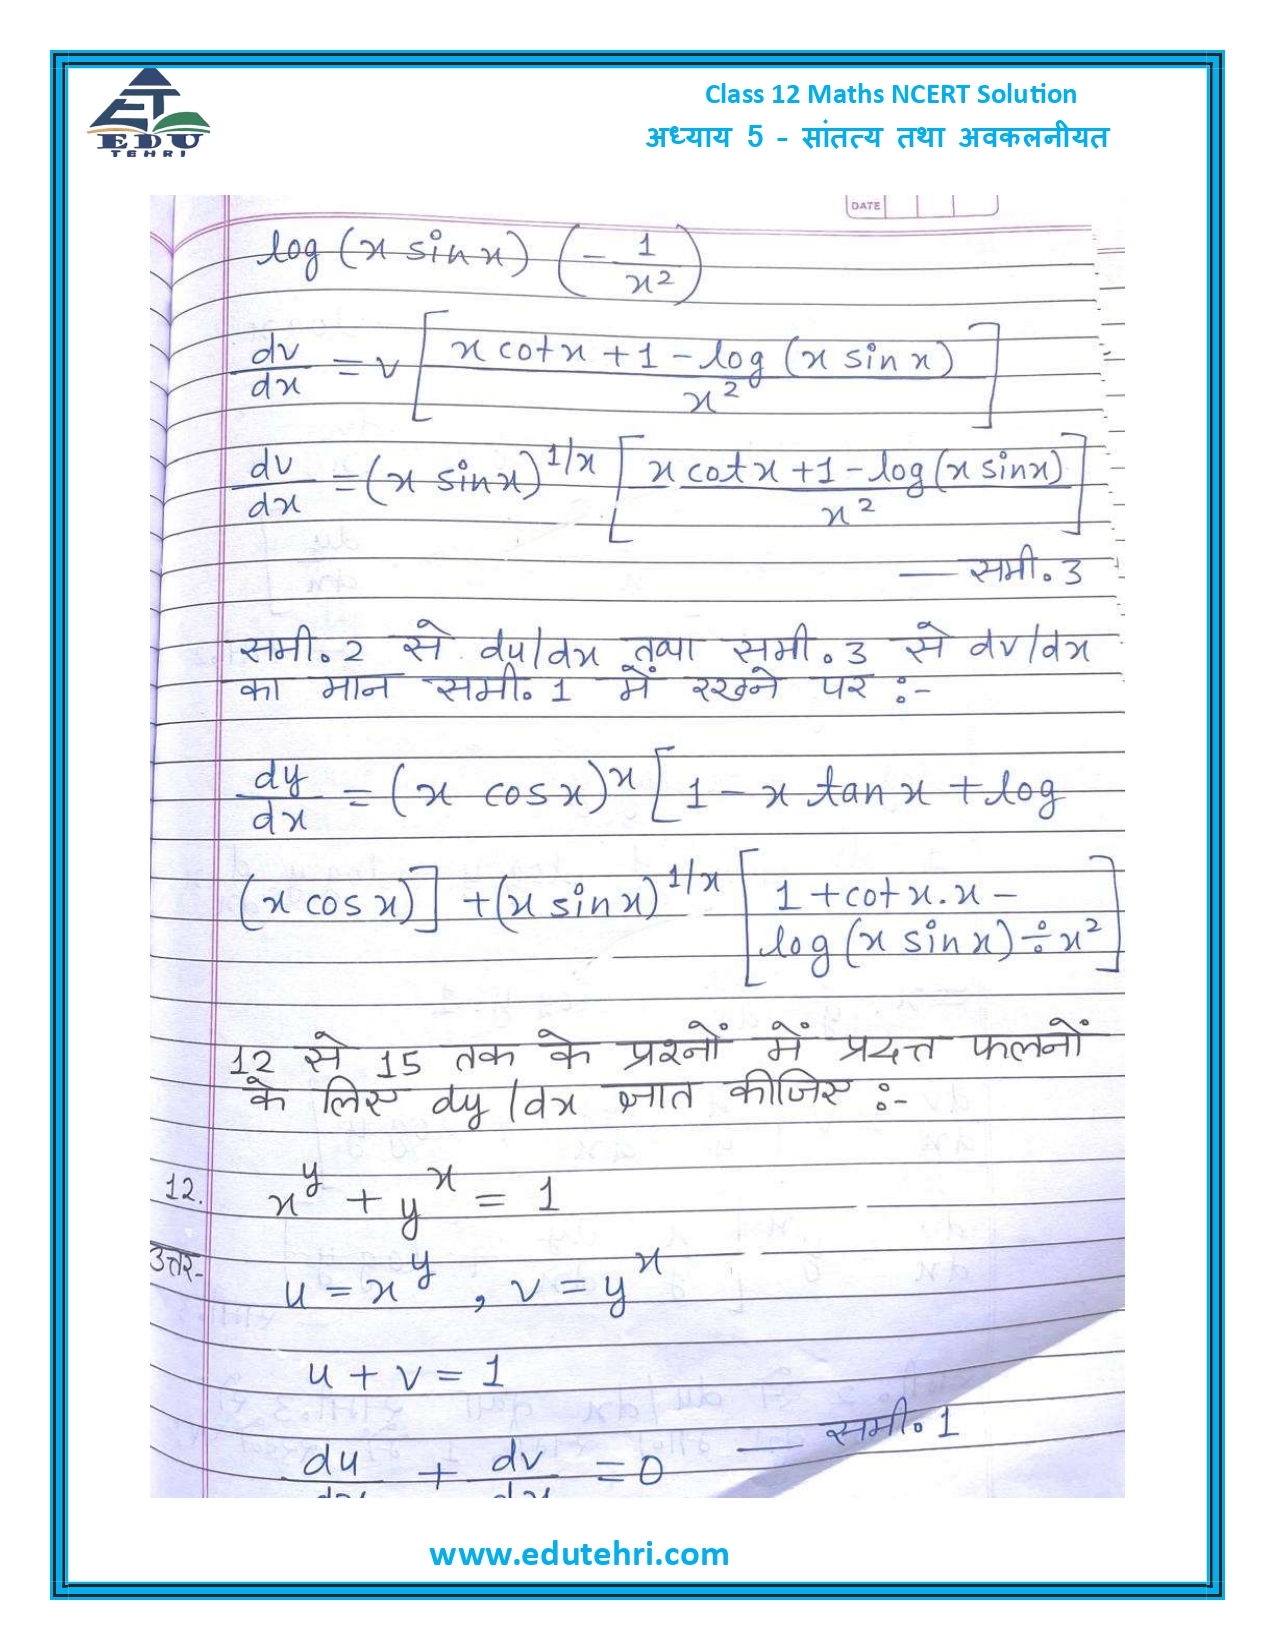 EDU
TEHRI
Class 12 Maths NCERT Solution
अध्याय 5 - सांतत्य तथा अवकलनीयत
DATE
log (x sin x) (-1/x²)
dv/dx = v [x cot x + 1 - log (x sin x) / x²]
dv/dx = (x sin x)^1/x [x cot x + 1 - log (x sin x) / x²]
— समी. 3
समी. 2 से du/dx तथा समी. 3 से dv/dx
का मान समी. 1 में रखने पर :-
dy/dx = (x cos x)^x [1 - x tan x + log
(x cos x)] + (x sin x)^1/x [1 + cot x . x -
log (x sin x) ÷ x²]
12 से 15 तक के प्रश्नों में प्रदत्त फलनों
के लिए dy/dx ज्ञात कीजिए :-
12. x^y + y^x = 1
उत्तर- u = x^y , v = y^x
u + v = 1
du/dx + dv/dx = 0 — समी. 1
www.edutehri.com